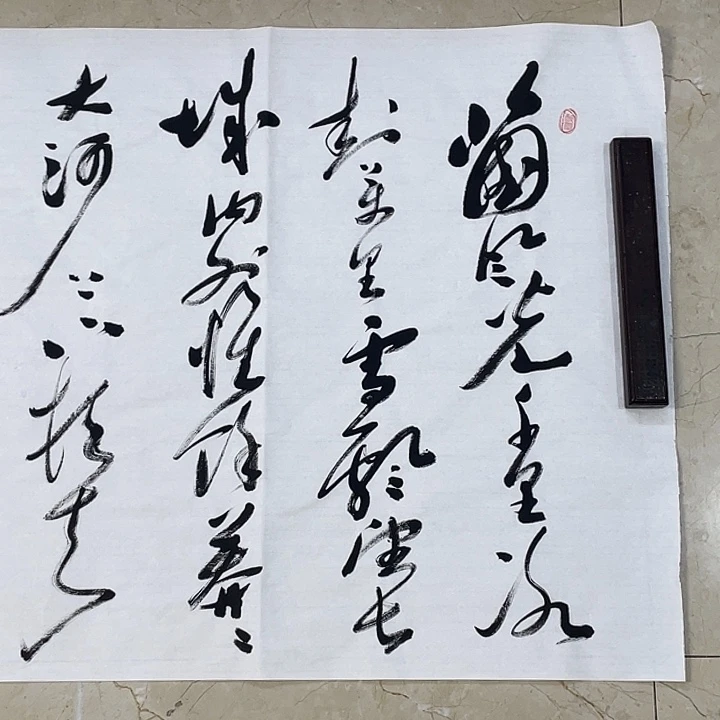 北国风光千里冰
封万里雪飘望长
城内外惟余莽〻
大河上下顿失